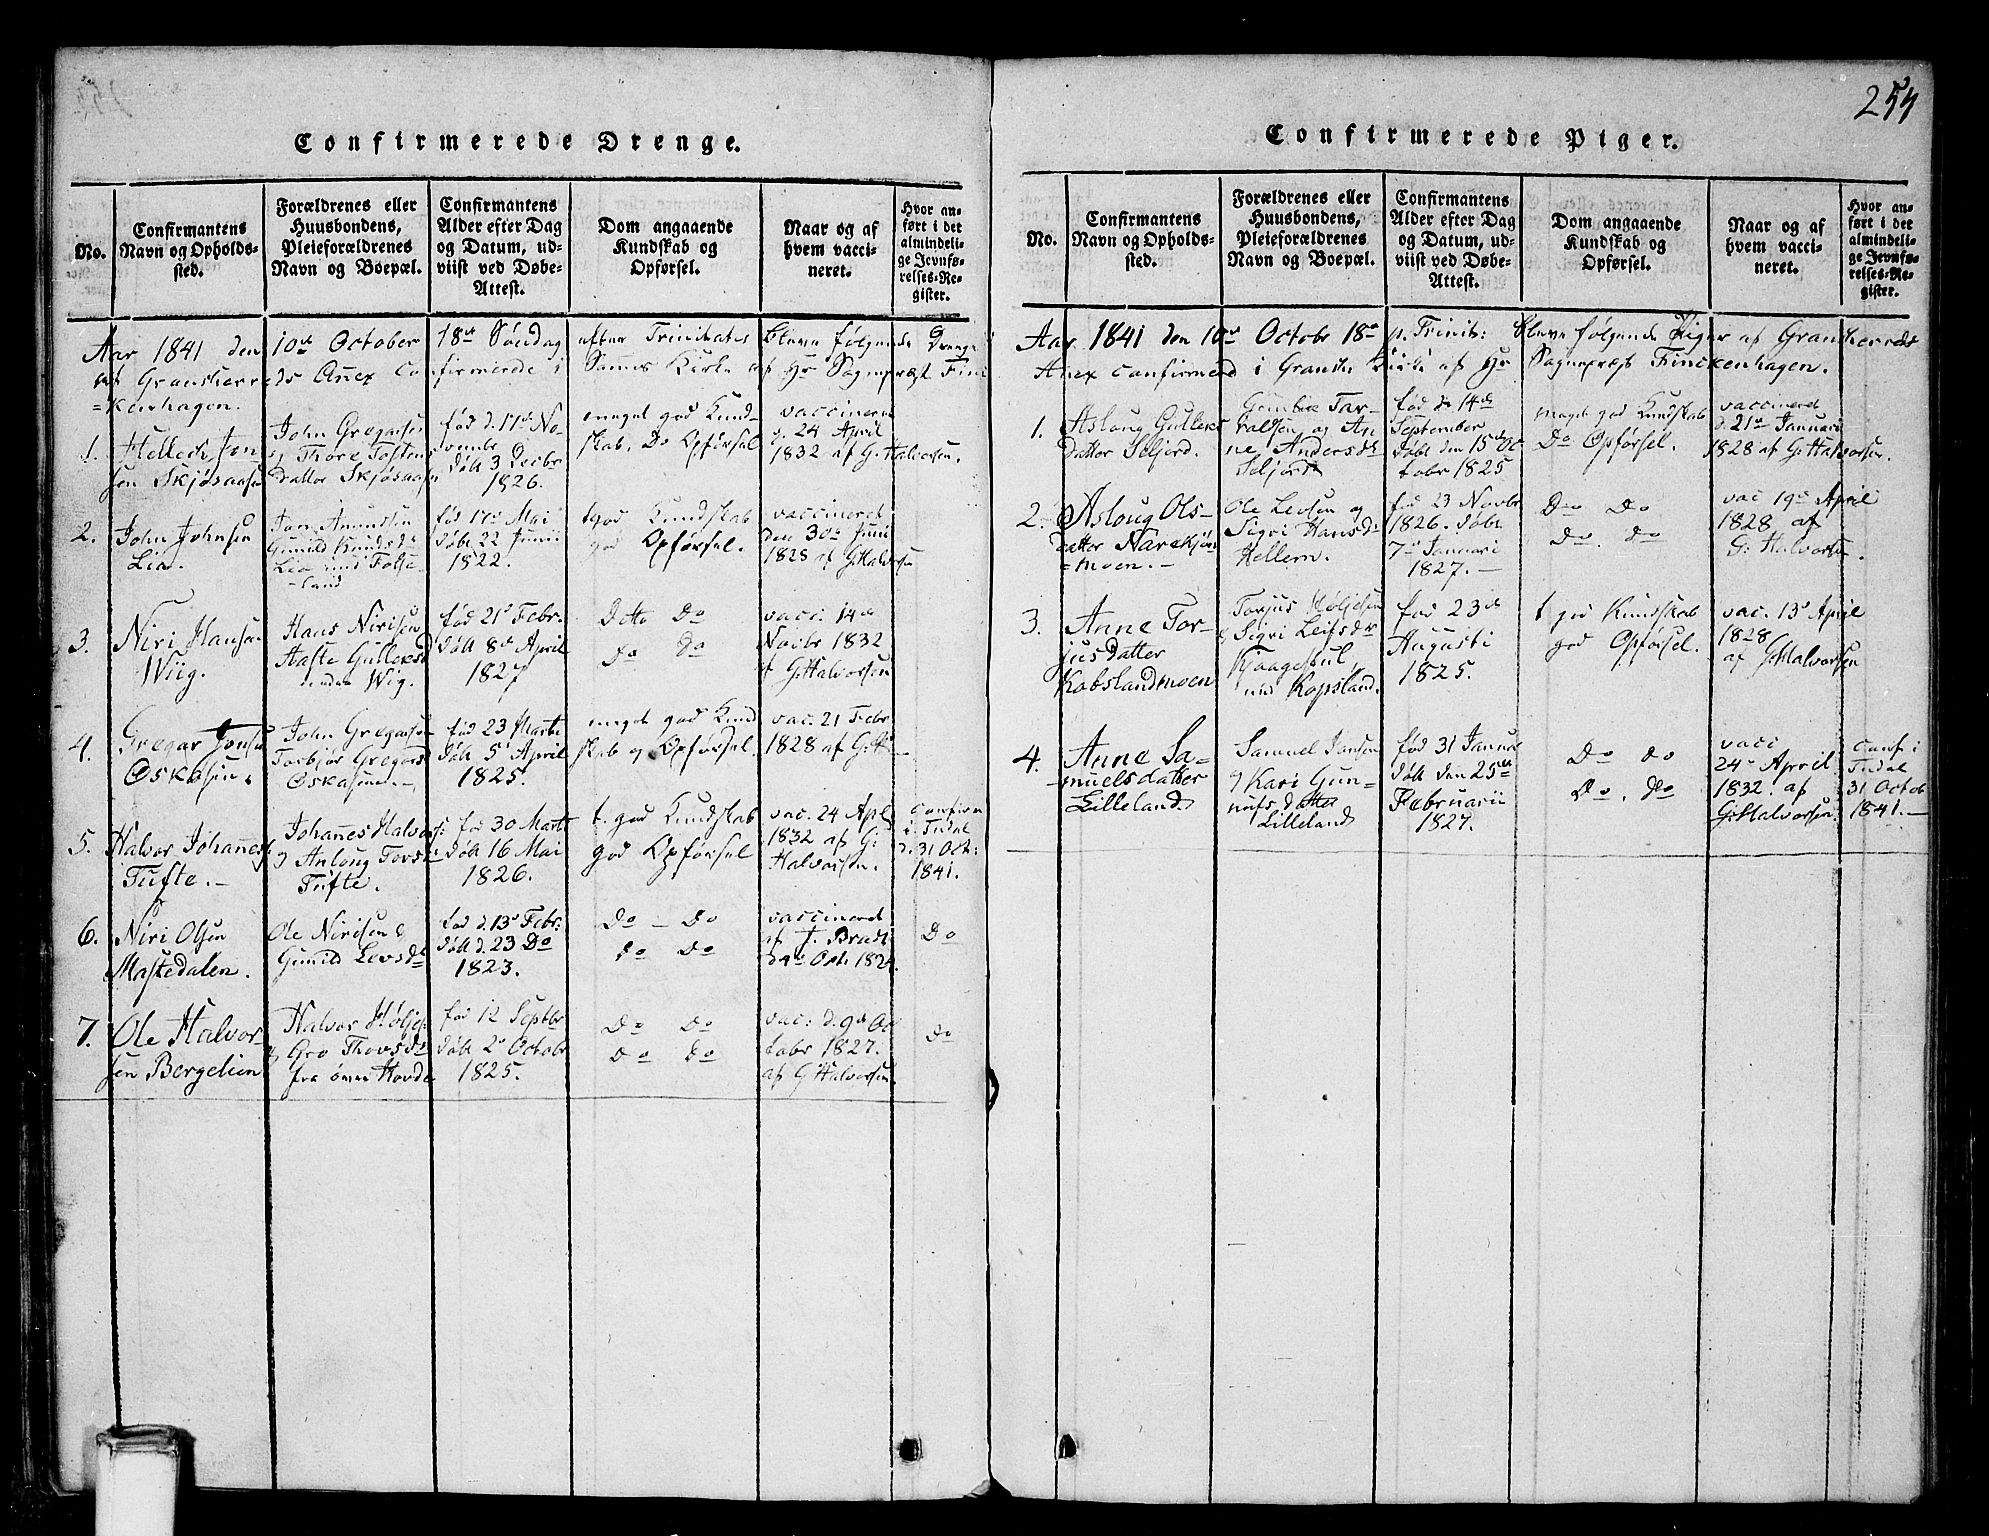 254
Confirmerede Drenge.
No.
Confirmantens
Navn og Opholds-
sted.
Forældrenes eller
Huusbondens,
Pleieforældrenes
Navn og Boepæl.
Confirmantens
Alder efter Dag
og Datum, ud-
viist ved Døbe-
Attest.
Dom angaaende
Kundskab og
Opførsel.
Naar og af
hvem vacci-
neret.
Hvor an-
ført i det
almindeli-
ge Jevnfø-
relses-Re-
gister.
Aar 1841 den 10de October 18de Söndag efter Trinitatis bleve følgende Drenge
af Gransherreds Anex Confirmerede i Kirke af Hr Sognepræst Finc
=kenhagen.
1.
Hellech Jon
sen Skjösaasen
John Gregarsen
Thore Tostens
datter Skjösaasen
fød d. 17de No
vembr
döbt 3 Decbr
1826.
meget god Kund-
skab. Do Opførsel.
vaccineret
d. 24 April
1832 af G. Halvorsen.
2.
John Johnsen
Lia.
Gunild Knudsd
fød 17de Mai
döbt 22 Junii
1822.
tgod Kundskab
god Opförsel.
vaccineret
den 30te Juni
1828 af G. Halvorsen
3.
Niri Hansen
Wiig.
Hans Nirisen
Aaste Gulleksd
Wig.
fød 21de Febr.
döbt 8de April
1827
Ditto Do
Do Do
vacc. 14de
Novbr 1832
af G. Halvorsen
4.
Gregar Jonsen
Øskosen.
John Gregarsen
Torbjør Gregars
Øskaasen
fød 23 Marti
döbt 5te April
1825.
meget god Kund
skab og Opførsel
vac. 21 Febr
1828 af G. H.
5.
Halvor Johanes
Tufte.
Johanes Halvors:
& Anlaug Torsd
Tufte.
fød 30 Marti
döbt 16 Mai
1826.
t. god Kundskab
god Opførsel
vac. 24 Apl
1832 af G.
Halvorsen.
Confirm
i Tudal
d. 31 Oct:
1841.
6.
Niri Olsen
Mastedalen.
Ole Nirisen &
Gunild Levsd
fød d. 13de Febr:
döbt d. 23 Do
1823.
Do Do
Do Do
vaccineret
af
Oct. 1824.
Do
7.
Ole Halvor
sen Bergelien
Halvor Höljes
& Gro Thovsd
fra övre Hovde
fød 12 Septbr
döbt 2de Octobr
1825.
Do Do
Do Do
vac: d. 9de Oc
tobr 1827.
af G. Halvorsen.
Do
Confirmerede Piger.
No.
Confirmantens
Navn og Opholds-
sted.
Forældrenes eller
Huusbondens,
Pleieforældrenes
Navn og Boepæl.
Confirmantens
Alder efter Dag
og Datum, ud-
viist ved Døbe-
Attest.
Dom angaaende
Kundskab og
Opførsel.
Naar og af
hvem vacci-
neret.
Hvor an-
ført i det
almindeli-
ge Jevnfø-
relses-Re-
gister.
Aar 1841 den 10de Octobr 18de p. Trinit: bleve følgende Piger af Gransherreds
Anex Confirmered i Kirke af Hr Sognepræst Finckenhagen.
1.
Aslaug Gulleks
datter Seljord.
og An
ne Andersd
Seljord
fød de 14de
September
döbt den 15de Oc
tobr 1825
meget god Kundskab
Do Opførsel.
vaccineret
d. 21de Januari
1828 af G. Halvorsen.
2.
Aslaug Ols-
datter
=moen.
Ole Levsen og
Sigri Hansd:
Hellern.
fød 23 Novbr
1826. döbt
7de Januari
1827.
Do Do
Do. Do
vac 19de April
1828 af
G: Halvorsen.
3.
Anne Tor-
jusdatter
Kobslandmoen
Torjus Höljesen
& Sigri Leifsdr
Kopsland.
fød 23de
Augusti
1825.
t god Kundskab
god Opførsel.
vac. 13de April
1828
af G. Halvorsen
4.
Anne Sa-
muelsdatter
Lilleland
Samuel Jansen
& Kari Gun-
nufsdatter
Lilleland
fød 31 Januar
döbt den 25de
Februarii
1827.
Do Do
Do. Do
vacc
24de April
1832. af
G. Halvorsen
conf. i
Tudal
31 Octob
1841.